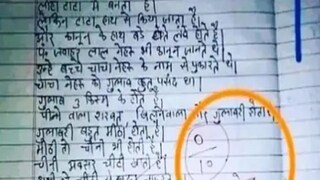 लोहा टाटा में बनता है।
लेकिन टाटा हाथ से किया जाता है।
और कानून के हाथ बड़े होते लंबे होते है।
पं. जवाहर लाल नेहरू भी कानून जानते थे।
इन्हे बच्चे चाचा नेहरू के नाम से पुकारते थे।
चाचा नेहरू को गुलाब बहुत पसंद था।
गुलाब 3 किस्म के होते है।
पीने वाला शरबत गुलकारी होता है।
गुलाबरी बहुत मीठी होती है।
मीठी तो चीनी भी होती है।
चीनी अक्सर चींटी खाती है।
0
10